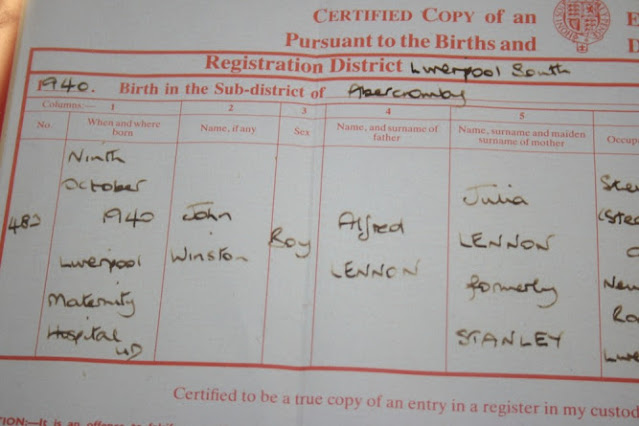 CERTIFIED COPY OF AN E
Pursuant to the Births and D
Registration District Liverpool South
1940. Birth in the Sub-district of Abercromby
Columns:— 1 2 3 4 5
No. When and where born Name, if any Sex Name, and surname of father Name, surname and maiden surname of mother Occup
Ninth
October Julia Ste
1940 John Alfred (Stea
Boy LENNON
Liverpool Winston LENNON formerly New
Maternity
Hospital STANLEY Live
Certified to be a true copy of an entry in a register in my custod
TION:—It is an offence to falsif